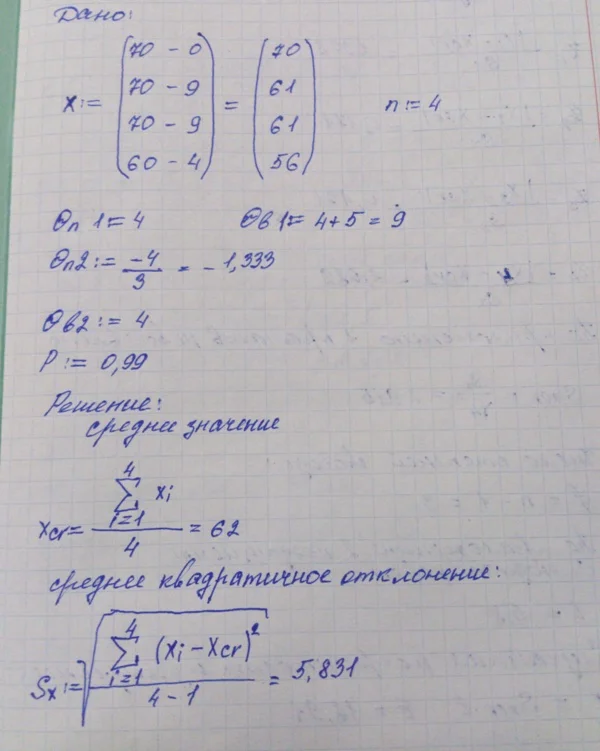 Дано:
x:= (70 - 0  70 - 9  70 - 9  60 - 4) = (70  61  61  56)  n:= 4
Θп 1:= 4  Θв1:= 4+5 = 9
Θп2:= -4/3 = - 1,333
Θв2:= 4
P:= 0,99
Решение:
среднее значение
xcr= 4 ∑ i=1 xi / 4 = 62
среднее квадратичное отклонение:
Sx:= √ 4 ∑ i=1 (xi - xcr)² / 4-1 = 5,831